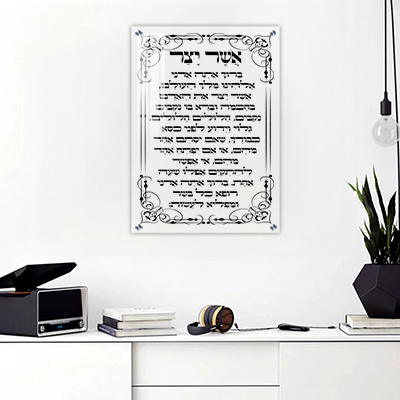 אשר יצר
ברוך אתה אדני
אלהינו מלך העולם,
אשר יצר את האדם
בחכמה וברא בו נקבים
נקבים, חלולים חלולים,
גלוי וידוע לפני כסא
כבודך, שאם יסתם אחד
מהם, או אם יפתח אחד
מהם, אי אפשר
להתקים אפילו שעה
אחת. ברוך אתה אדני
רופא כל בשר
ומפליא לעשות: